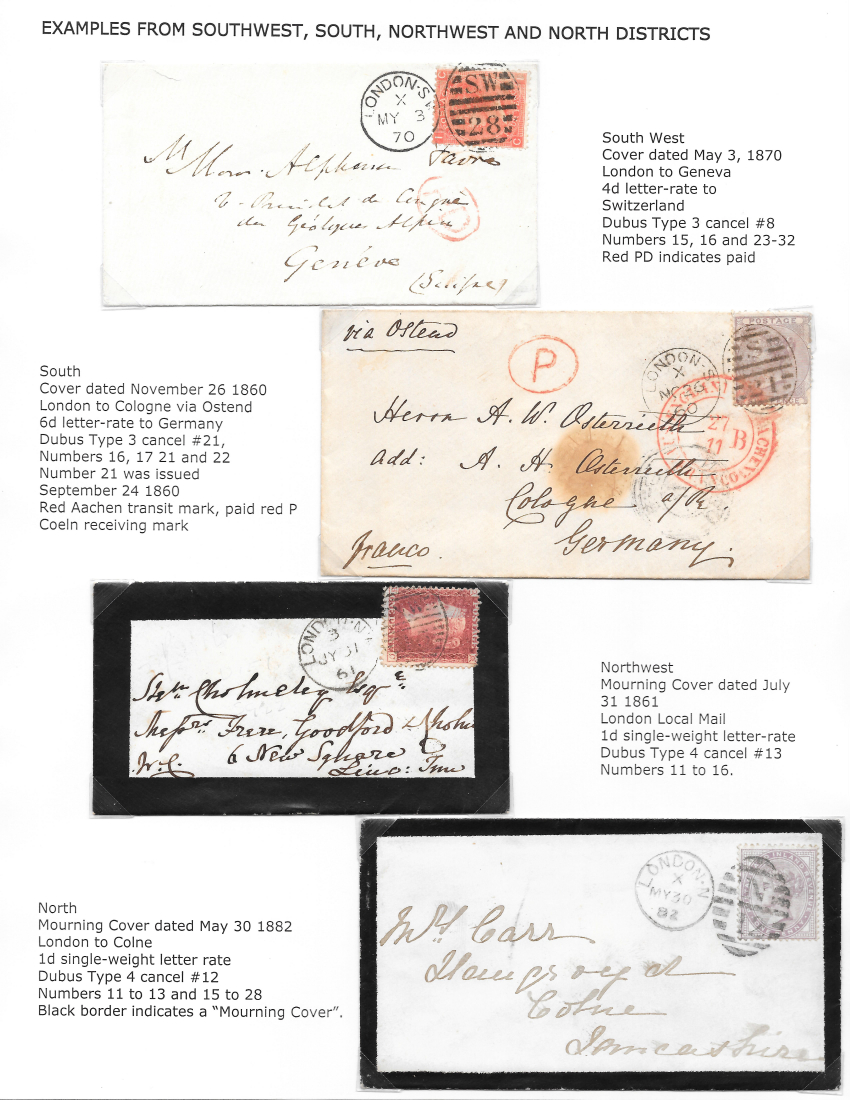 EXAMPLES FROM SOUTHWEST, SOUTH, NORTHWEST AND NORTH DISTRICTS
LONDON·S
X
MY 3
70
SW
28
South West
Cover dated May 3, 1870
London to Geneva
4d letter-rate to
Switzerland
Dubus Type 3 cancel #8
Numbers 15, 16 and 23-32
Red PD indicates paid
Alphonse Favre
Genève
South
Cover dated November 26 1860
London to Cologne via Ostend
6d letter-rate to Germany
Dubus Type 3 cancel #21,
Numbers 16, 17 21 and 22
Number 21 was issued
September 24 1860
Red Aachen transit mark, paid red P
Coeln receiving mark
via Ostend
P
POSTAGE
LONDON·S
X
60
S
21
27
11
B
Herrn A. W. Osterrieth
add: A. H. Osterrieth
Cologne a/R
Germany.
franco.
LONDON·N
3
JY 31
61
Cholmeley Esq
Messrs Frere, Goodford &
6 New Square
Linc: Inn
W.C.
Northwest
Mourning Cover dated July
31 1861
London Local Mail
1d single-weight letter-rate
Dubus Type 4 cancel #13
Numbers 11 to 16.
LONDON·N
X
MY 30
82
N
North
Mourning Cover dated May 30 1882
London to Colne
1d single-weight letter rate
Dubus Type 4 cancel #12
Numbers 11 to 13 and 15 to 28
Black border indicates a “Mourning Cover”.
Carr
Colne
Lancashire